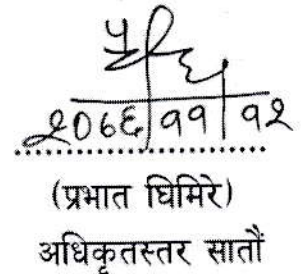 २०६६/११/१२
(प्रभात घिमिरे)
अधिकृतस्तर सातौं